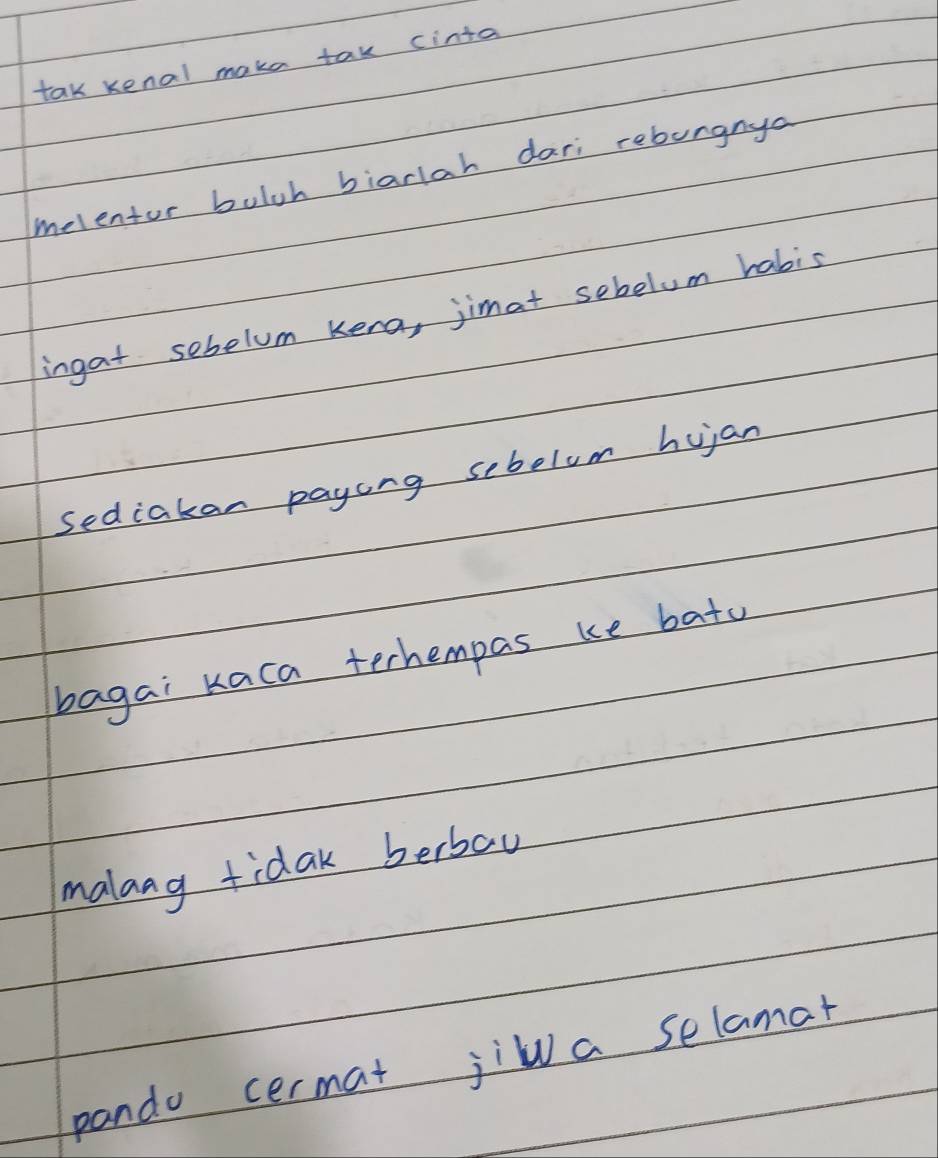 tak kenal maka tak cinta
melentur buluh biarlah dari rebungnya
ingat sebelum kena, jimat sebelum habis
sediakan payung sebelum hujan
bagai kaca terhempas ke batu
malang tidak berbau
pandu cermat jiwa selamat